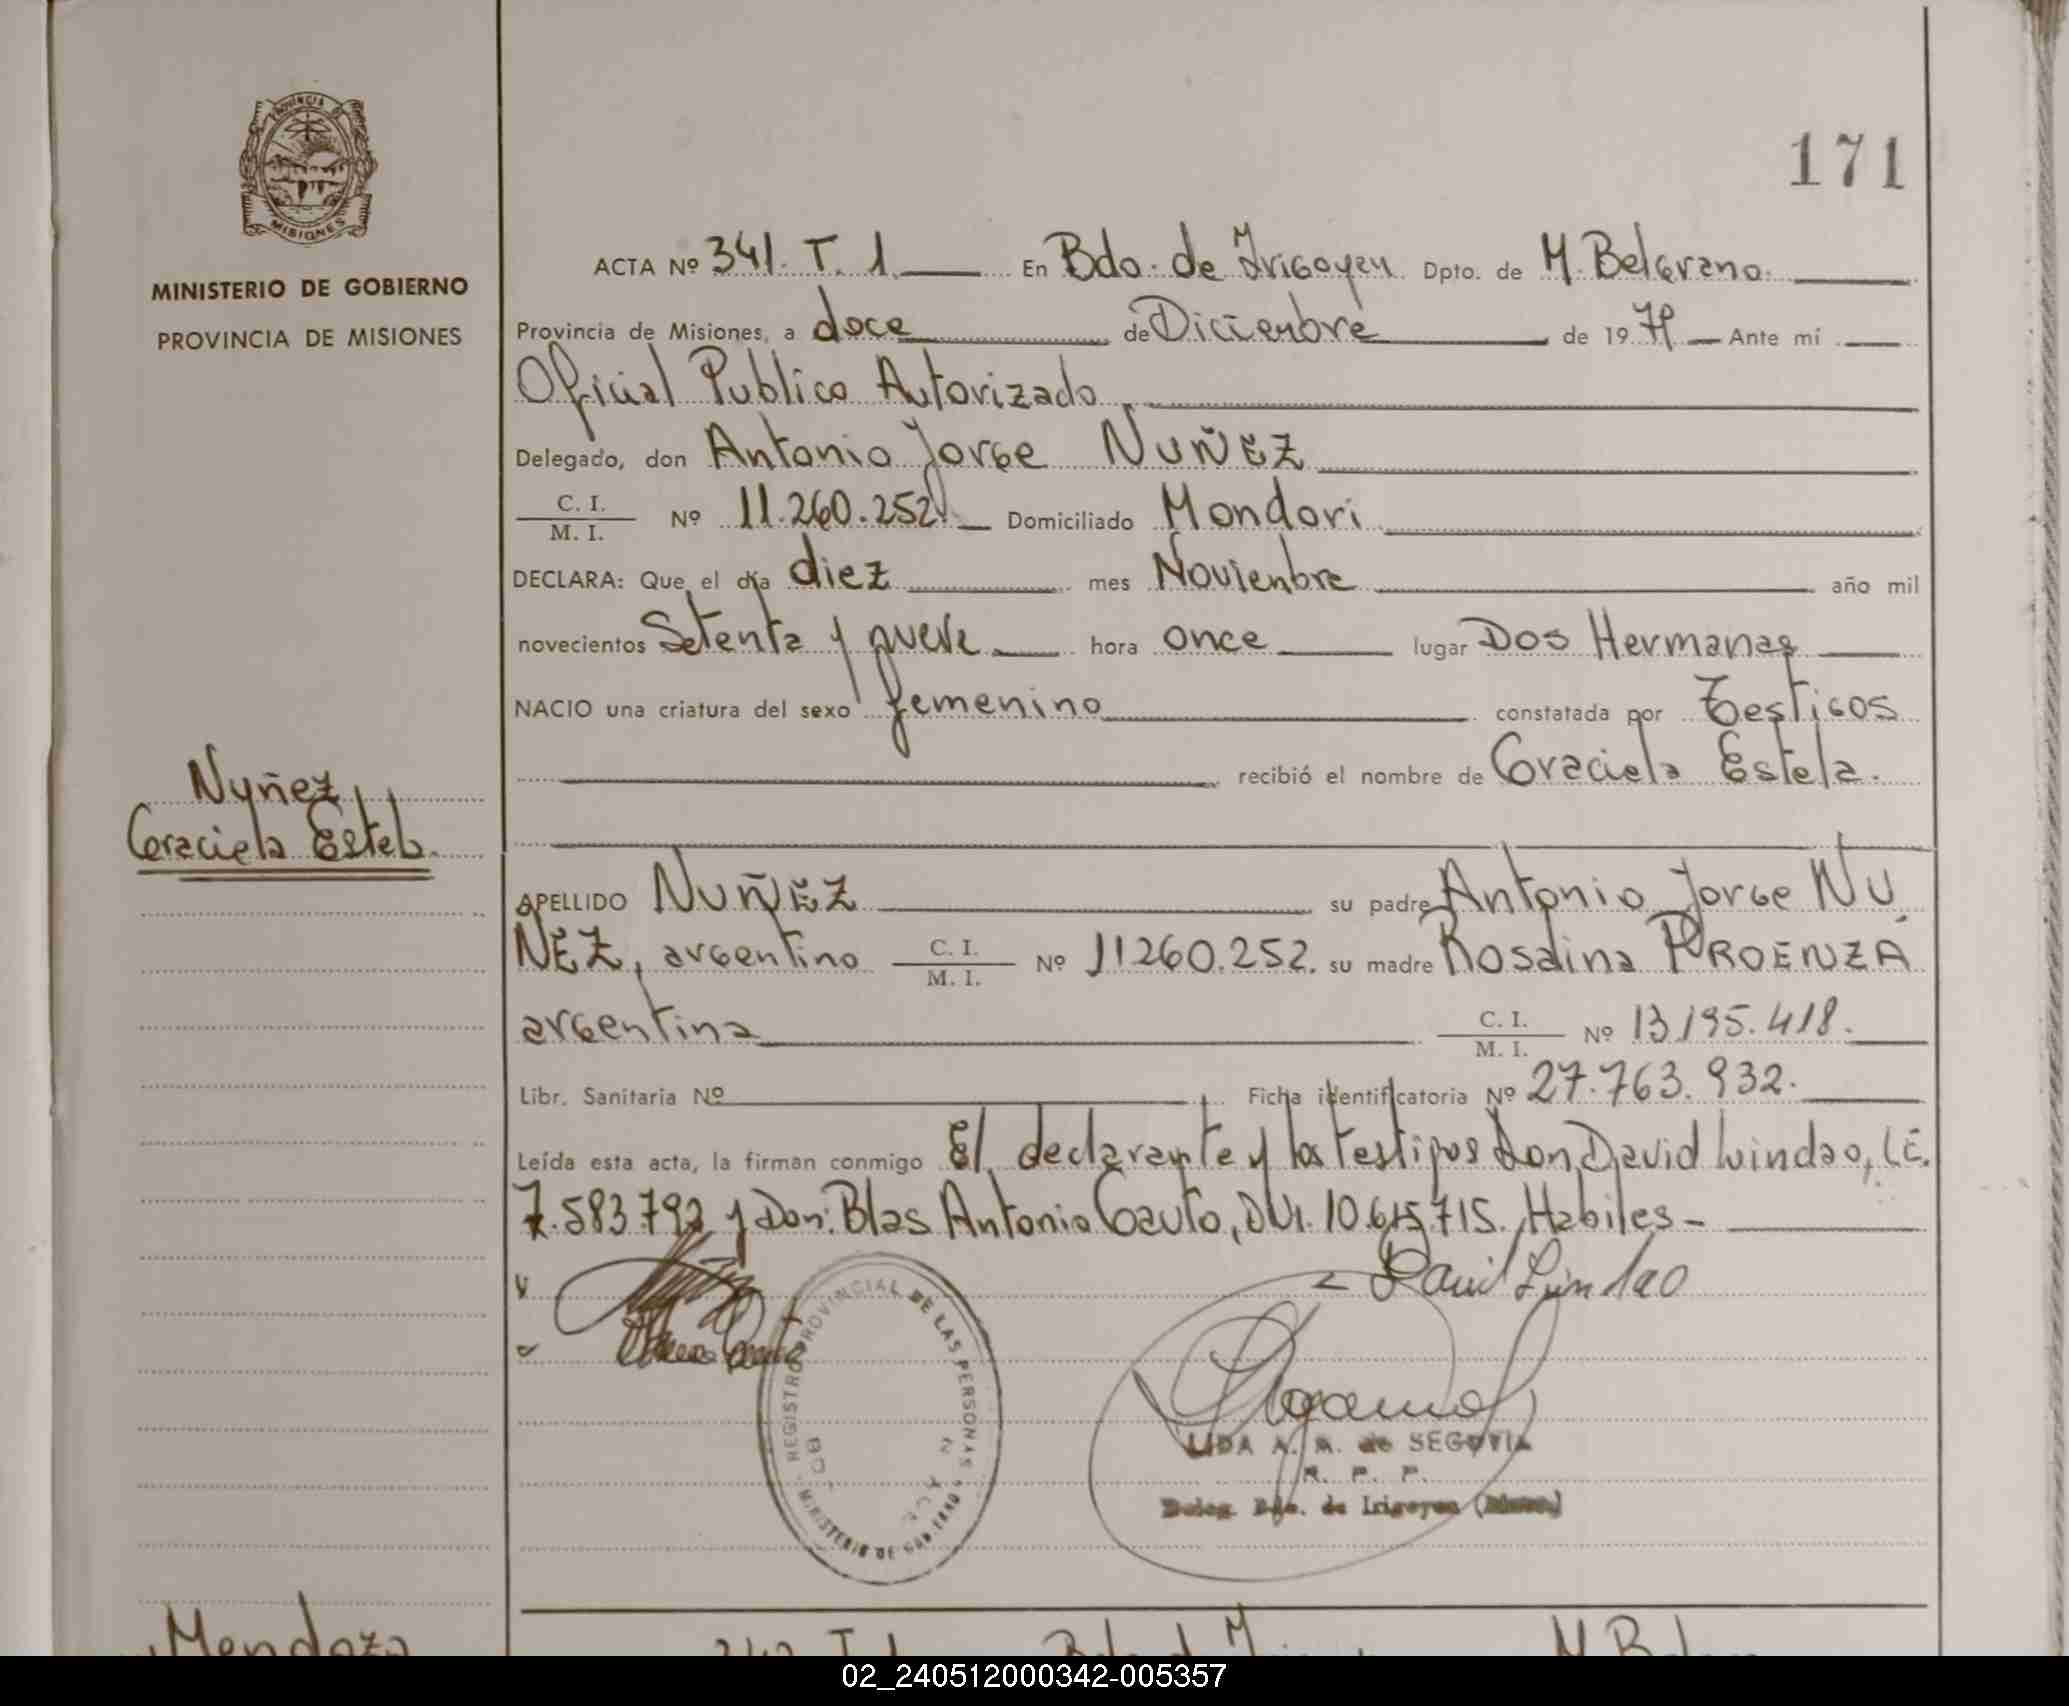 PROVINCIA DE
MISIONES
MINISTERIO DE GOBIERNO
PROVINCIA DE MISIONES
171
ACTA Nº 341. T. 1. En Bdo. de Irigoyen Dpto. de M. Belgrano.
Provincia de Misiones, a doce de Diciembre de 1979 Ante mí
Oficial Publico Autorizado
Delegado, don Antonio Jorge NUÑEZ
C. I.
M. I. Nº 11.260.252. Domiciliado Mondori
DECLARA: Que el día diez mes Novienbre año mil
novecientos Setenta y nueve hora once lugar Dos Hermanas
NACIO una criatura del sexo femenino constatada por Testigos
recibió el nombre de Graciela Estela.
Nuñez
Graciela Estela.
APELLIDO NUÑEZ su padre Antonio Jorge NU
ÑEZ, argentino C. I.
M. I. Nº 11260.252. su madre Rosalina PROENZA
argentina C. I.
M. I. Nº 13.195.418.
Libr. Sanitaria Nº Ficha identificatoria Nº 27.763.932.
Leída esta acta, la firman conmigo El declarante y los testigos Don David Luindao, L.E.
7.583.792 y Don: Blas Antonio Gauto, DNI. 10.615.715. Habiles-
REGISTRO PROVINCIAL DE LAS PERSONAS
MINISTERIO DE GOBIERNO
LIDA A. M. de SEGOVIA
Deleg. Bdo. de Irigoyen (Mnes.)
Mendoza
342 T. 1
02_240512000342-005357